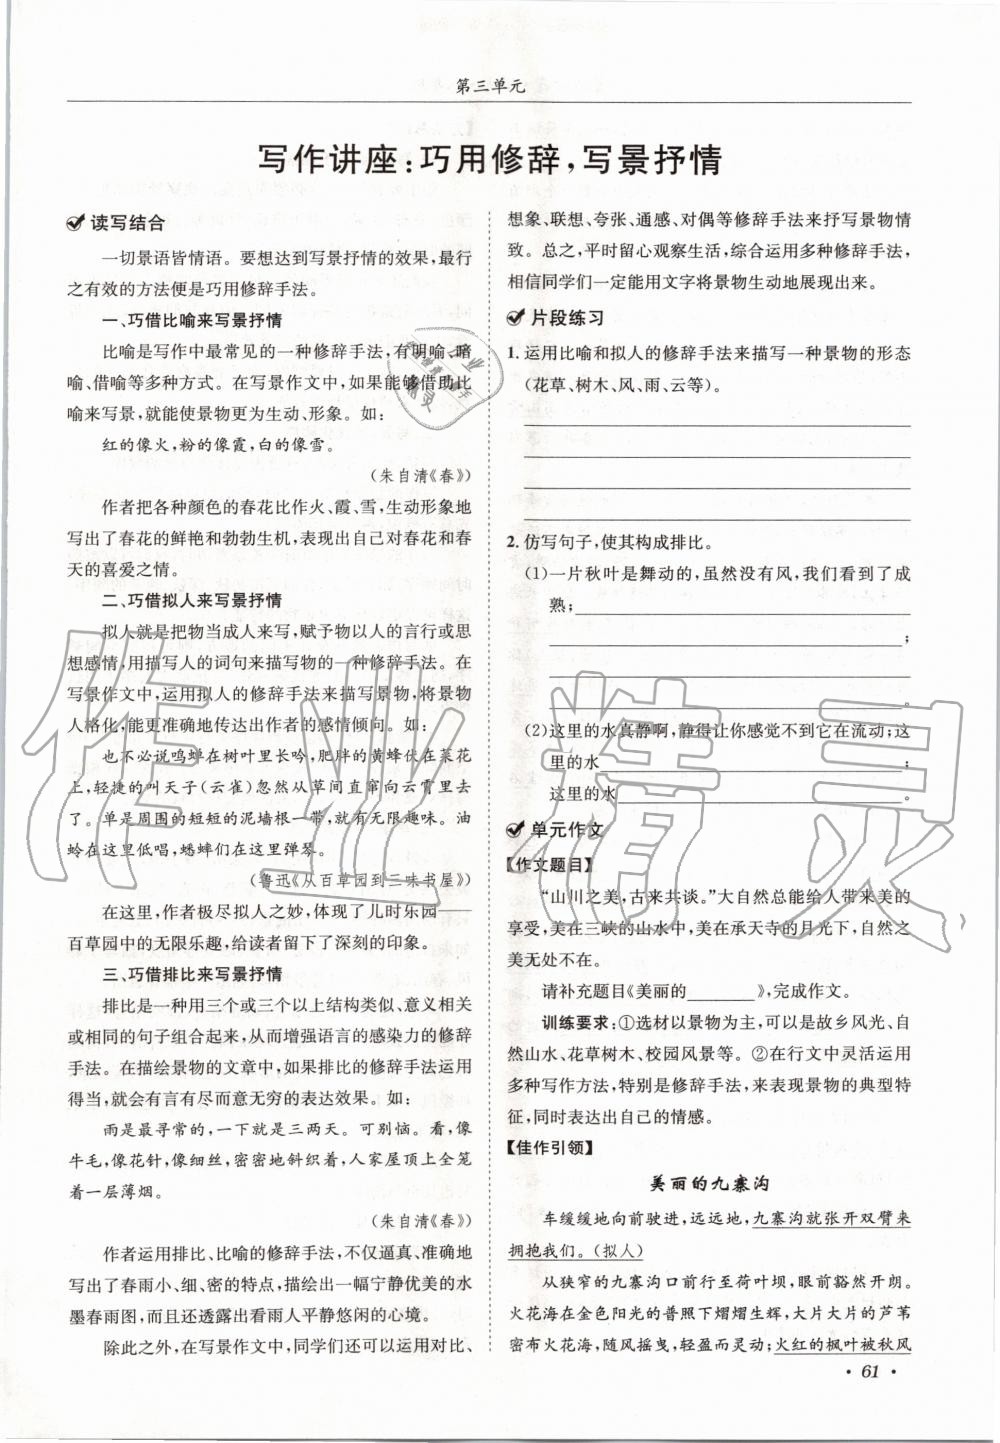 第三单元
写作讲座:巧用修辞,写景抒情
读写结合
一切景语皆情语。要想达到写景抒情的效果,最行
之有效的方法便是巧用修辞手法。
一、巧借比喻来写景抒情
比喻是写作中最常见的一种修辞手法,有明喻、暗
喻、借喻等多种方式。在写景作文中,如果能够借助比
喻来写景,就能使景物更为生动、形象。如:
红的像火,粉的像霞,白的像雪。
(朱自清《春》)
作者把各种颜色的春花比作火、霞、雪,生动形象地
写出了春花的鲜艳和勃勃生机,表现出自己对春花和春
天的喜爱之情。
二、巧借拟人来写景抒情
拟人就是把物当成人来写,赋予物以人的言行或思
想感情,用描写人的词句来描写物的一种修辞手法。在
写景作文中,运用拟人的修辞手法来描写景物,将景物
人格化,能更准确地传达出作者的感情倾向。如:
也不必说鸣蝉在树叶里长吟,肥胖的黄蜂伏在菜花
上,轻捷的叫天子(云雀)忽然从草间直窜向云霄里去
了。单是周围的短短的泥墙根一带,就有无限趣味。油
蛉在这里低唱,蟋蟀们在这里弹琴。
(鲁迅《从百草园到三味书屋》)
在这里,作者极尽拟人之妙,体现了儿时乐园——
百草园中的无限乐趣,给读者留下了深刻的印象。
三、巧借排比来写景抒情
排比是一种用三个或三个以上结构类似、意义相关
或相同的句子组合起来,从而增强语言的感染力的修辞
手法。在描绘景物的文章中,如果排比的修辞手法运用
得当,就会有言有尽而意无穷的表达效果。如:
雨是最寻常的,一下就是三两天。可别恼。看,像
牛毛,像花针,像细丝,密密地斜织着,人家屋顶上全笼
着一层薄烟。
(朱自清《春》)
作者运用排比、比喻的修辞手法,不仅逼真、准确地
写出了春雨小、细、密的特点,描绘出一幅宁静优美的水
墨春雨图,而且还透露出看雨人平静悠闲的心境。
除此之外,在写景作文中,同学们还可以运用对比、
想象、联想、夸张、通感、对偶等修辞手法来抒写景物情
致。总之,平时留心观察生活,综合运用多种修辞手法,
相信同学们一定能用文字将景物生动地展现出来。
片段练习
1. 运用比喻和拟人的修辞手法来描写一种景物的形态
(花草、树木、风、雨、云等)。
2. 仿写句子,使其构成排比。
(1)一片秋叶是舞动的,虽然没有风,我们看到了成
熟;
;
。
(2)这里的水真静啊,静得让你感觉不到它在流动;这
里的水;
这里的水。
单元作文
【作文题目】
“山川之美,古来共谈。”大自然总能给人带来美的
享受,美在三峡的山水中,美在承天寺的月光下,自然之
美无处不在。
请补充题目《美丽的________》,完成作文。
训练要求:①选材以景物为主,可以是故乡风光、自
然山水、花草树木、校园风景等。②在行文中灵活运用
多种写作方法,特别是修辞手法,来表现景物的典型特
征,同时表达出自己的情感。
【佳作引领】
美丽的九寨沟
车缓缓地向前驶进,远远地,九寨沟就张开双臂来
拥抱我们。(拟人)
从狭窄的九寨沟口前行至荷叶坝,眼前豁然开朗。
火花海在金色阳光的普照下熠熠生辉,大片大片的芦苇
密布火花海,随风摇曳,轻盈而灵动;火红的枫叶被秋风
· 61 ·
作业精灵